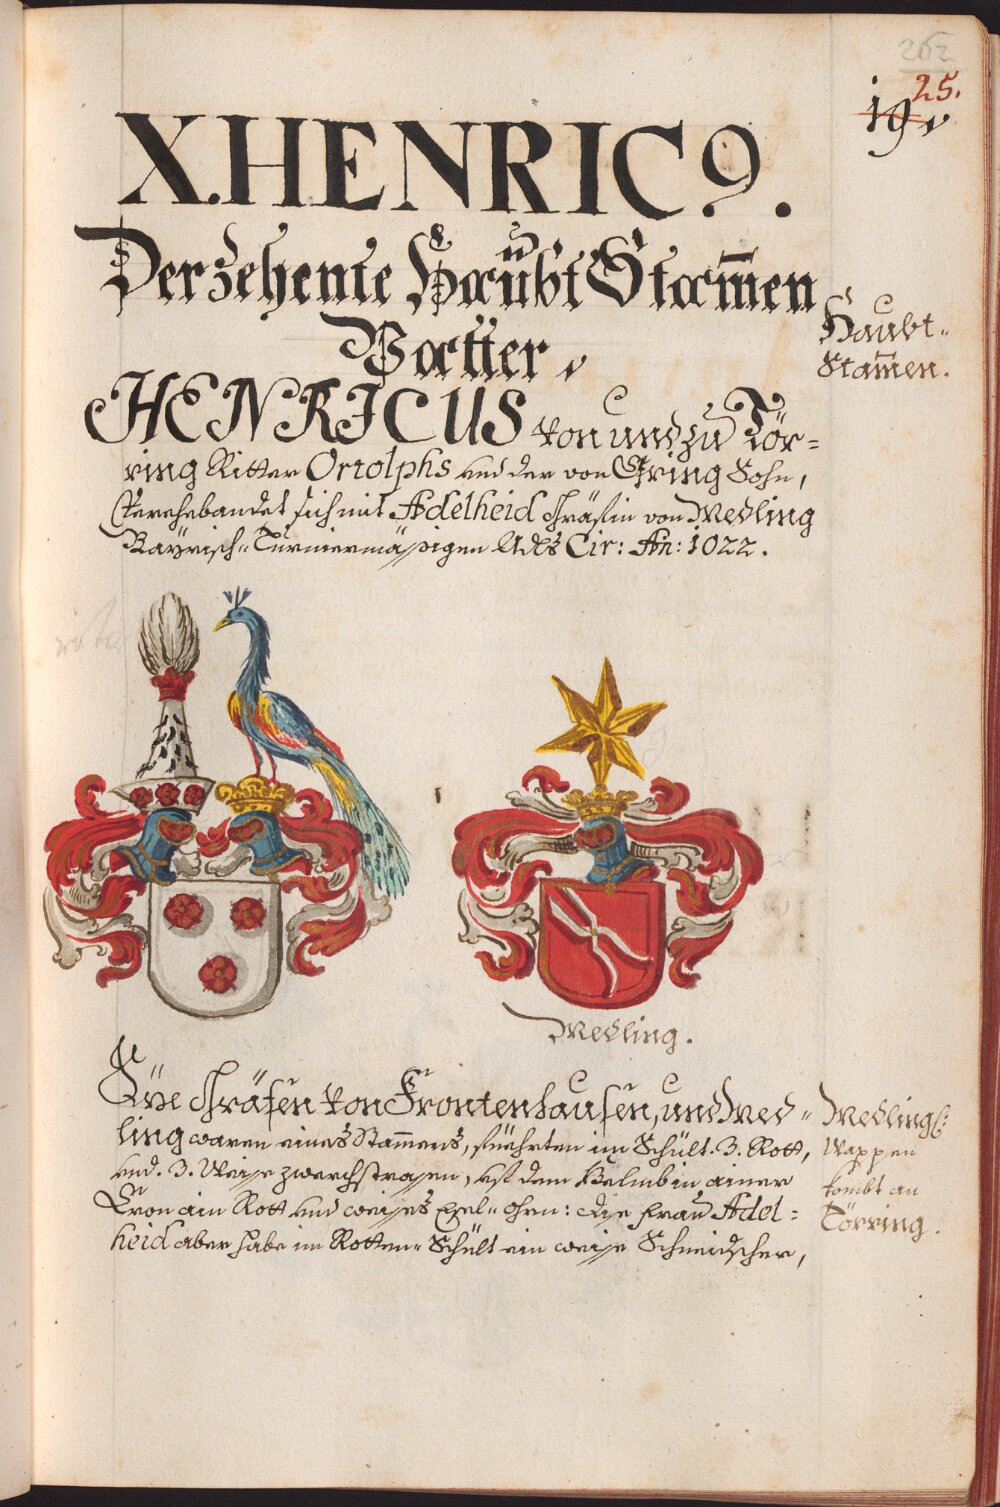 262
25.
19
X. HENRIC9.
Der zehente Haŭbt Stam̄en
Vatter,
Haubt-
Stam̄en.
HENRICUS von und zu Tör=
ring Ritter Ortolphs und der von Gring Sohn,
Verehebandet sich mit Adelheid Gräfin von Medling
Bayrisch-Turniermäßigen Adls Cir: An: 1022.
Medling.
Die Gräfen von Frontenhausen, und Med-
ling waren eines Stam̄ens, fuehrten im Schült. 3. Rott,
und. 3. Weiße zwerchstrassen, uf dem Helmb in ainer
Cron ain Rott und weißes Esel-ohrn: die Frau Adel=
heid aber habe im Rotten-Schült ein weiße Schneidscher,
Medling:
Wappen
kombt an
Törring.